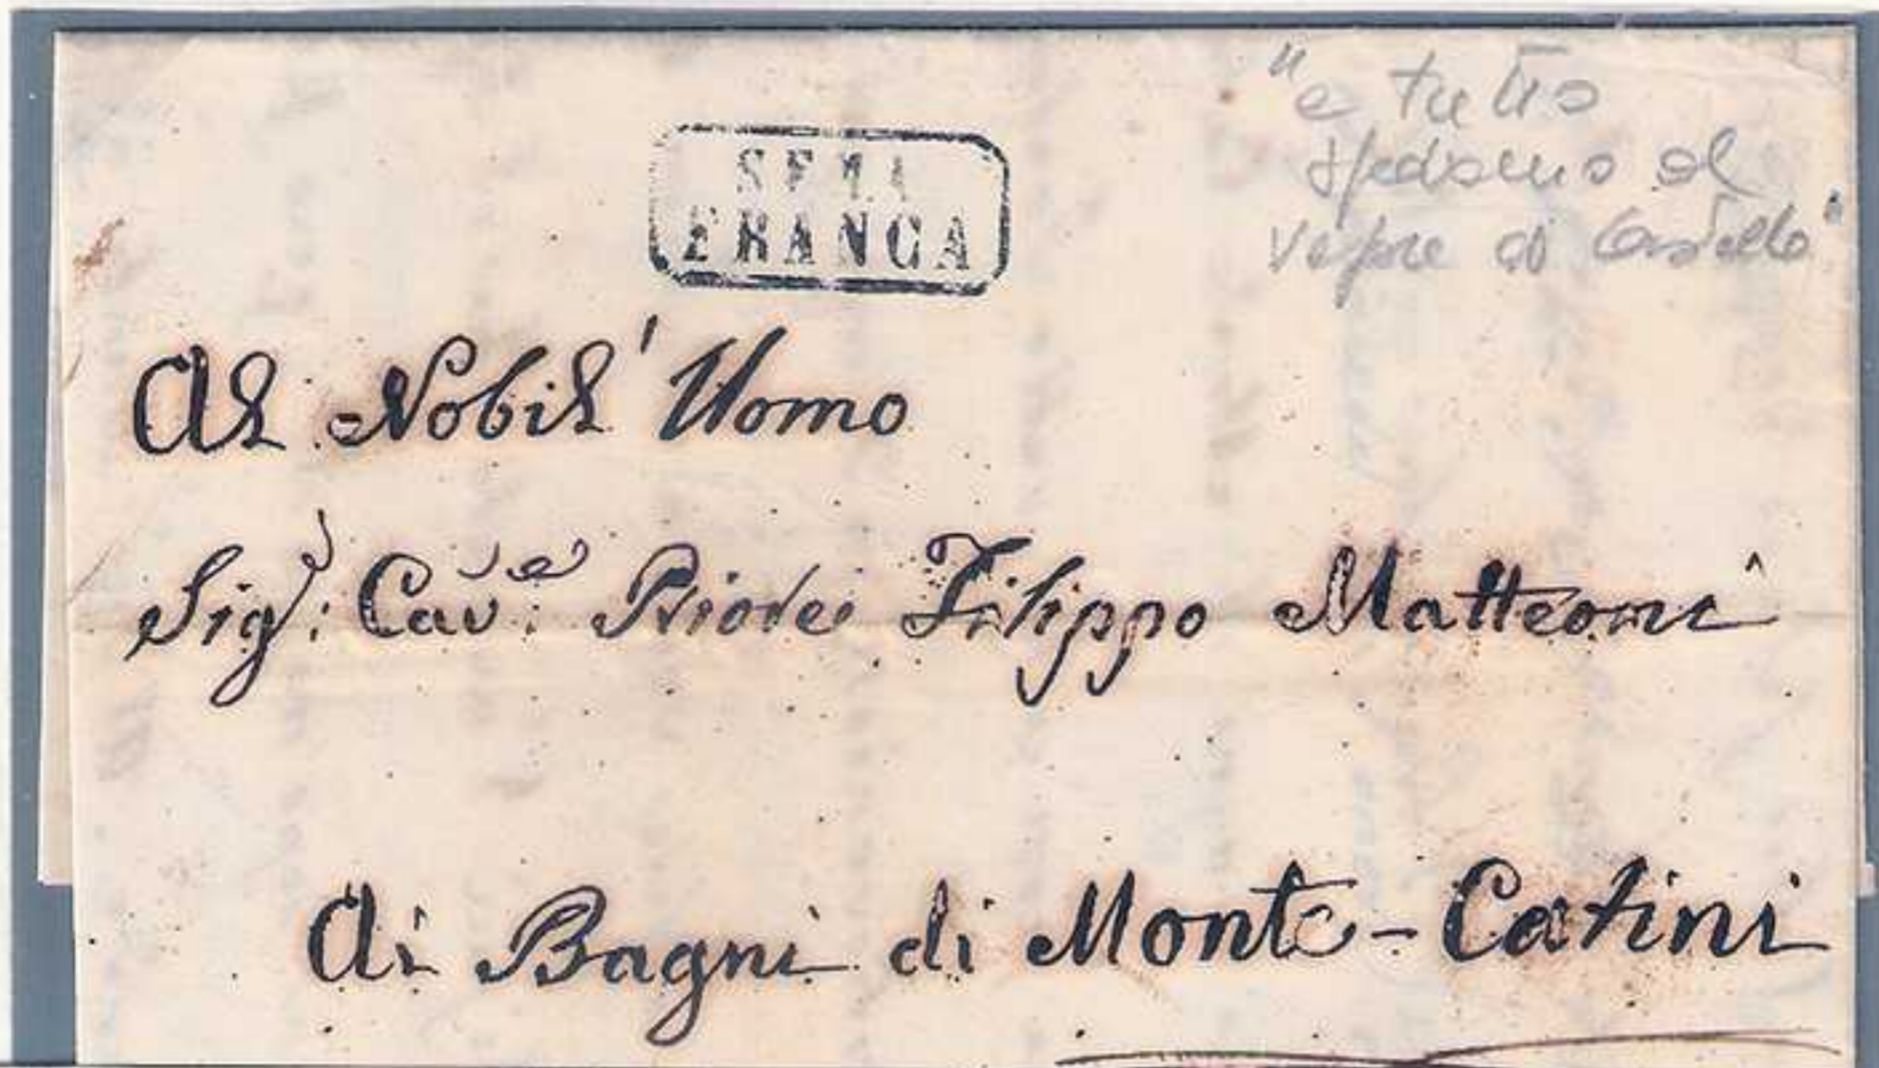 SEZA
FRANCA
"e tutto
spediamo al
Vapore di Castello"
Al Nobil' Uomo
Sigr: Cave: Filippo Matteoni
Ai Bagni di Monte-Catini